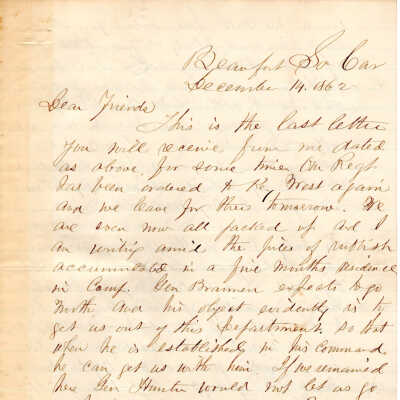 Beaufort So Car
December 14. 1862
Dear Friends
This is the last letter
you will receive from me dated
as above, for some time, Our Regt
has been ordered to Key West again
and we leave for there tomorrow. We
are even now all packed up and I
am writing amid the piles of rubbish
accumulated in a five months residence
in Camp. Gen Brannan expects to go
North, and his object evidently is to
get us out of this Department so that
when he is established in his command
he can get us with him. If we remained
here Gen Hunter would not let us go